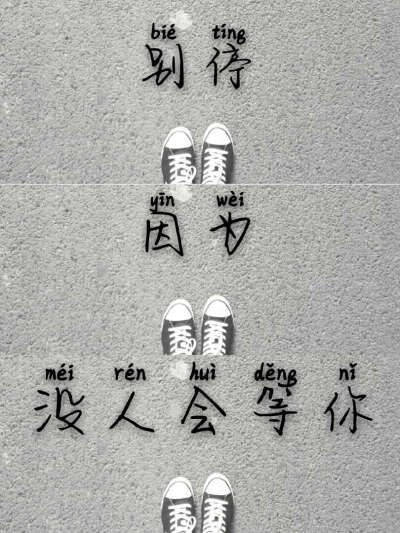 bié tíng
别停
yīn wèi
因为
méi rén huì děng nǐ
没人会等你